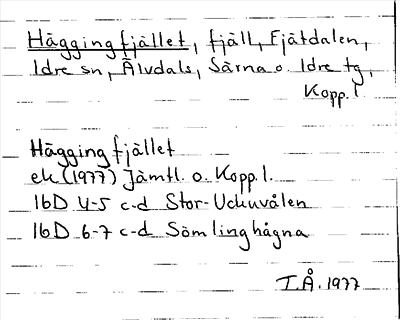 Häggingfjället, fjäll, Fjätdalen,
Idre sn, Älvdals, Särna o. Idre tg,
Kopp. l.
Häggingfjället
ek (1977) Jämtl. o. Kopp. l.
16D 4-5 c-d Stor-Uckuvålen
16D 6-7 c-d Sömlinghågna
I.Å. 1977